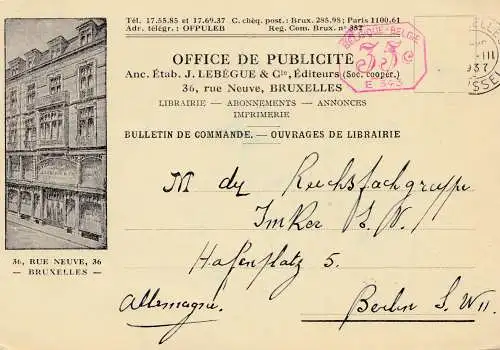 Tél. 17.55.85 et 17.69.37  C. chèq. post.: Brux. 285.98; Paris 1100.61
Adr. télégr.: OFPULEB  Reg. Com. Brux. nº 382
BELGIQUE-BELGIE
E 345
1937
OFFICE DE PUBLICITÉ
Anc. Étab. J. LEBÈGUE & Cie, Éditeurs (Soc. coopér.)
36, rue Neuve, BRUXELLES
LIBRAIRIE — ABONNEMENTS — ANNONCES
IMPRIMERIE
BULLETIN DE COMMANDE. — OUVRAGES DE LIBRAIRIE
Reichsfachgruppe
Imker
Hafenplatz 5.
Allemagne.
Berlin S. W 11.
36, RUE NEUVE, 36
— BRUXELLES —